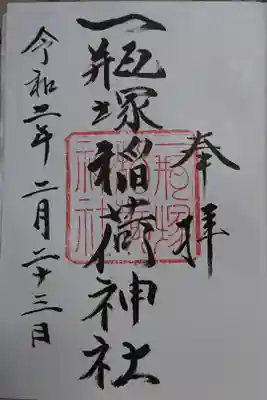 奉拝
一瓶塚稲荷神社
令和二年二月二十三日
一瓶塚稲荷神社